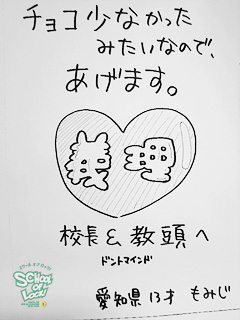 チョコ少なかった
みたいなので、
あげます。
義理
校長&教頭へ
ドントマインド
愛知県13才 もみじ
SCHOOL
OF
LOCK!